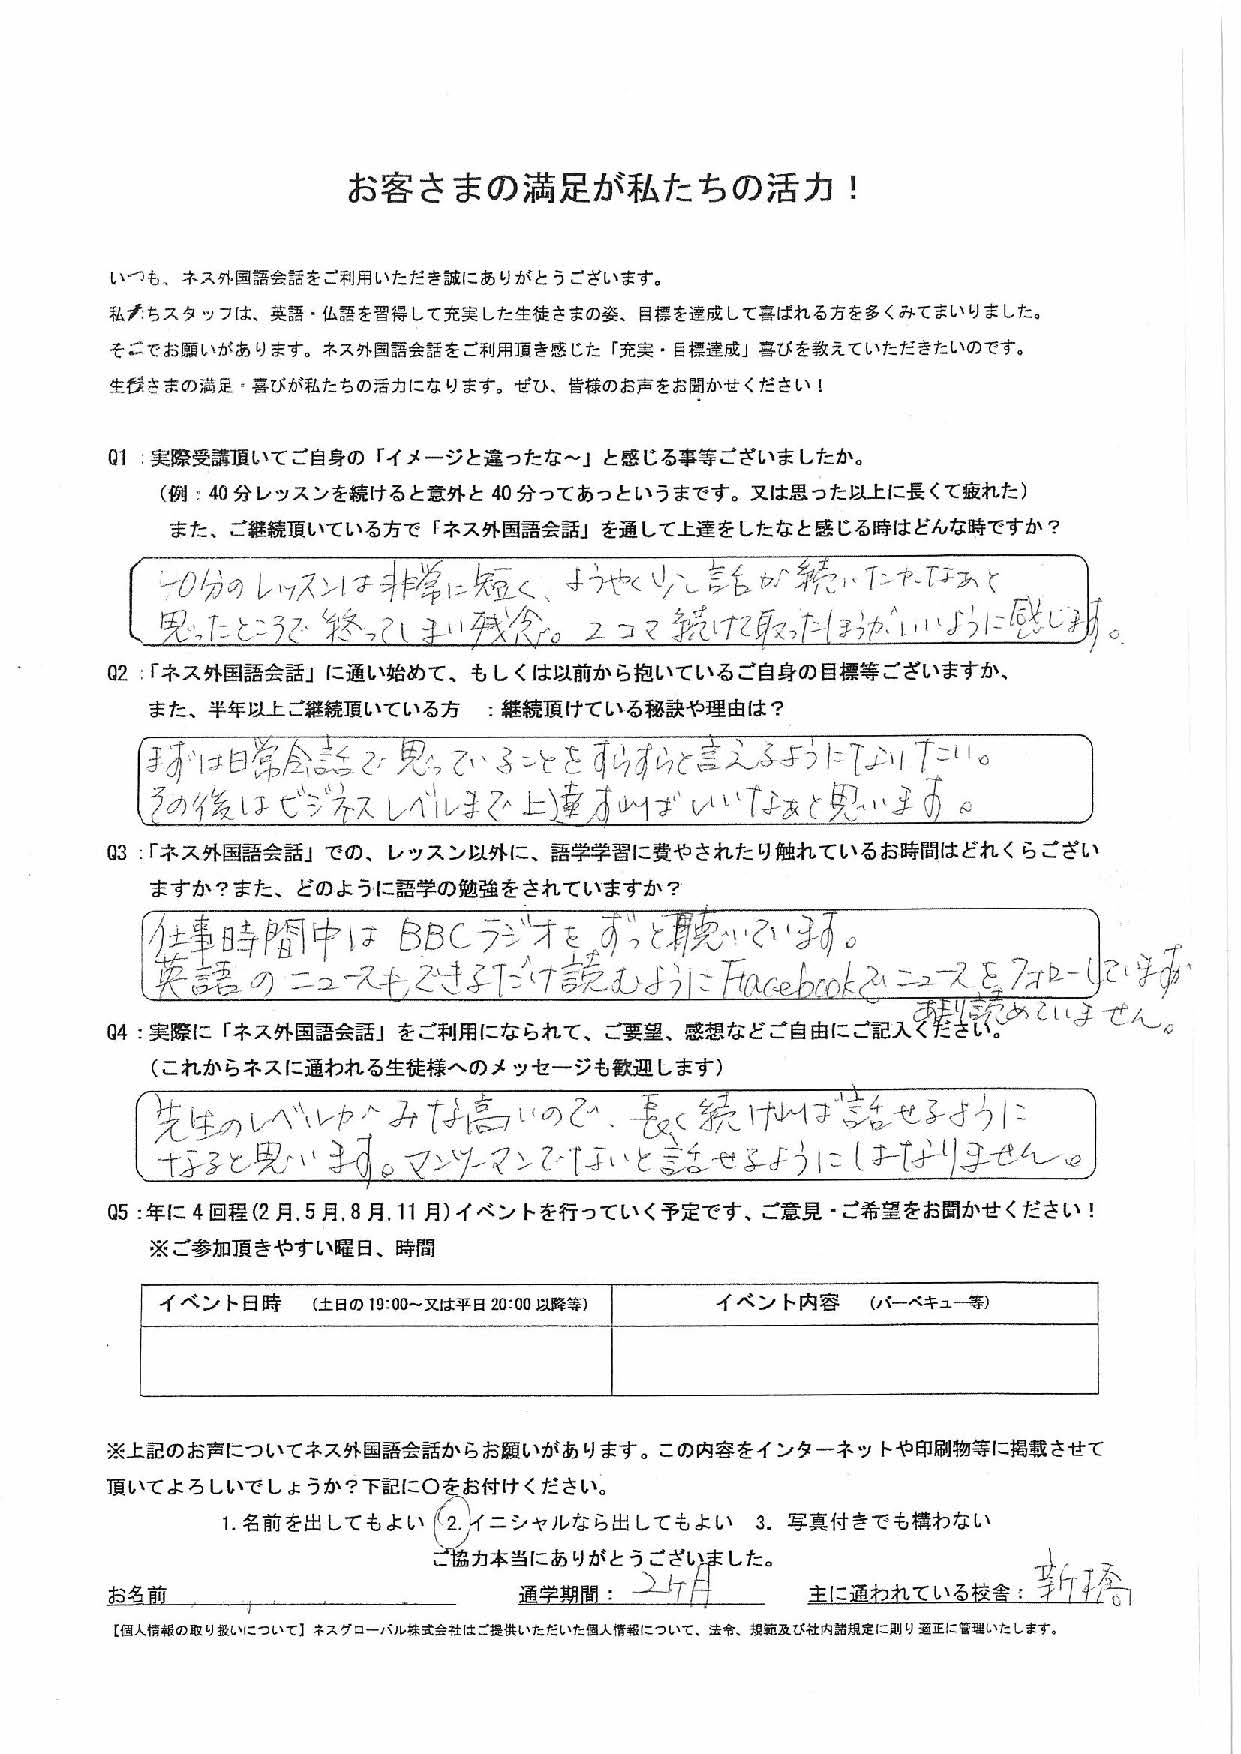 お客さまの満足が私たちの活力！
いつも、ネス外国語会話をご利用いただき誠にありがとうございます。
私たちスタッフは、英語・仏語を習得して充実した生徒さまの姿、目標を達成して喜ばれる方を多くみてまいりました。
そこでお願いがあります。ネス外国語会話をご利用頂き感じた「充実・目標達成」喜びを教えていただきたいのです。
生徒さまの満足・喜びが私たちの活力になります。ぜひ、皆様のお声をお聞かせください！
Q1：実際受講頂いてご自身の「イメージと違ったな～」と感じる事等ございましたか。
（例：40分レッスンを続けると意外と40分ってあっというまです。又は思った以上に長くて疲れた）
また、ご継続頂いている方で「ネス外国語会話」を通して上達をしたなと感じる時はどんな時ですか？
40分のレッスンは非常に短く、ようやく少し話が続いたかなぁと
思ったところで終ってしまい残念。2コマ続けて取ったほうがいいように感じます。
Q2：「ネス外国語会話」に通い始めて、もしくは以前から抱いているご自身の目標等ございますか、
また、半年以上ご継続頂いている方　：継続頂けている秘訣や理由は？
まずは日常会話で思っていることをすらすらと言えるようになりたい。
その後はビジネスレベルまで上達すればいいなぁと思います。
Q3：「ネス外国語会話」での、レッスン以外に、語学学習に費やされたり触れているお時間はどれくらござい
ますか？また、どのように語学の勉強をされていますか？
仕事時間中はBBCラジオをずっと聴いています。
英語のニュースも、できるだけ読むようにFacebookでニュースをフォローしていますが
あまり読めていません。
Q4：実際に「ネス外国語会話」をご利用になられて、ご要望、感想などご自由にご記入ください。
（これからネスに通われる生徒様へのメッセージも歓迎します）
先生のレベルがみな高いので、長く続ければ話せるように
なると思います。マンツーマンでないと話せるようにはなりません。
Q5：年に4回程(2月,5月,8月,11月)イベントを行っていく予定です、ご意見・ご希望をお聞かせください！
※ご参加頂きやすい曜日、時間
イベント日時　（土日の19:00～又は平日20:00以降等）　イベント内容　（バーベキュー等）
※上記のお声についてネス外国語会話からお願いがあります。この内容をインターネットや印刷物等に掲載させて
頂いてよろしいでしょうか？下記に〇をお付けください。
1.名前を出してもよい　2.イニシャルなら出してもよい　3.写真付きでも構わない
ご協力本当にありがとうございました。
お名前　通学期間：2ヶ月　主に通われている校舎：新橋
【個人情報の取り扱いについて】ネスグローバル株式会社はご提供いただいた個人情報について、法令、規範及び社内諸規定に則り適正に管理いたします。